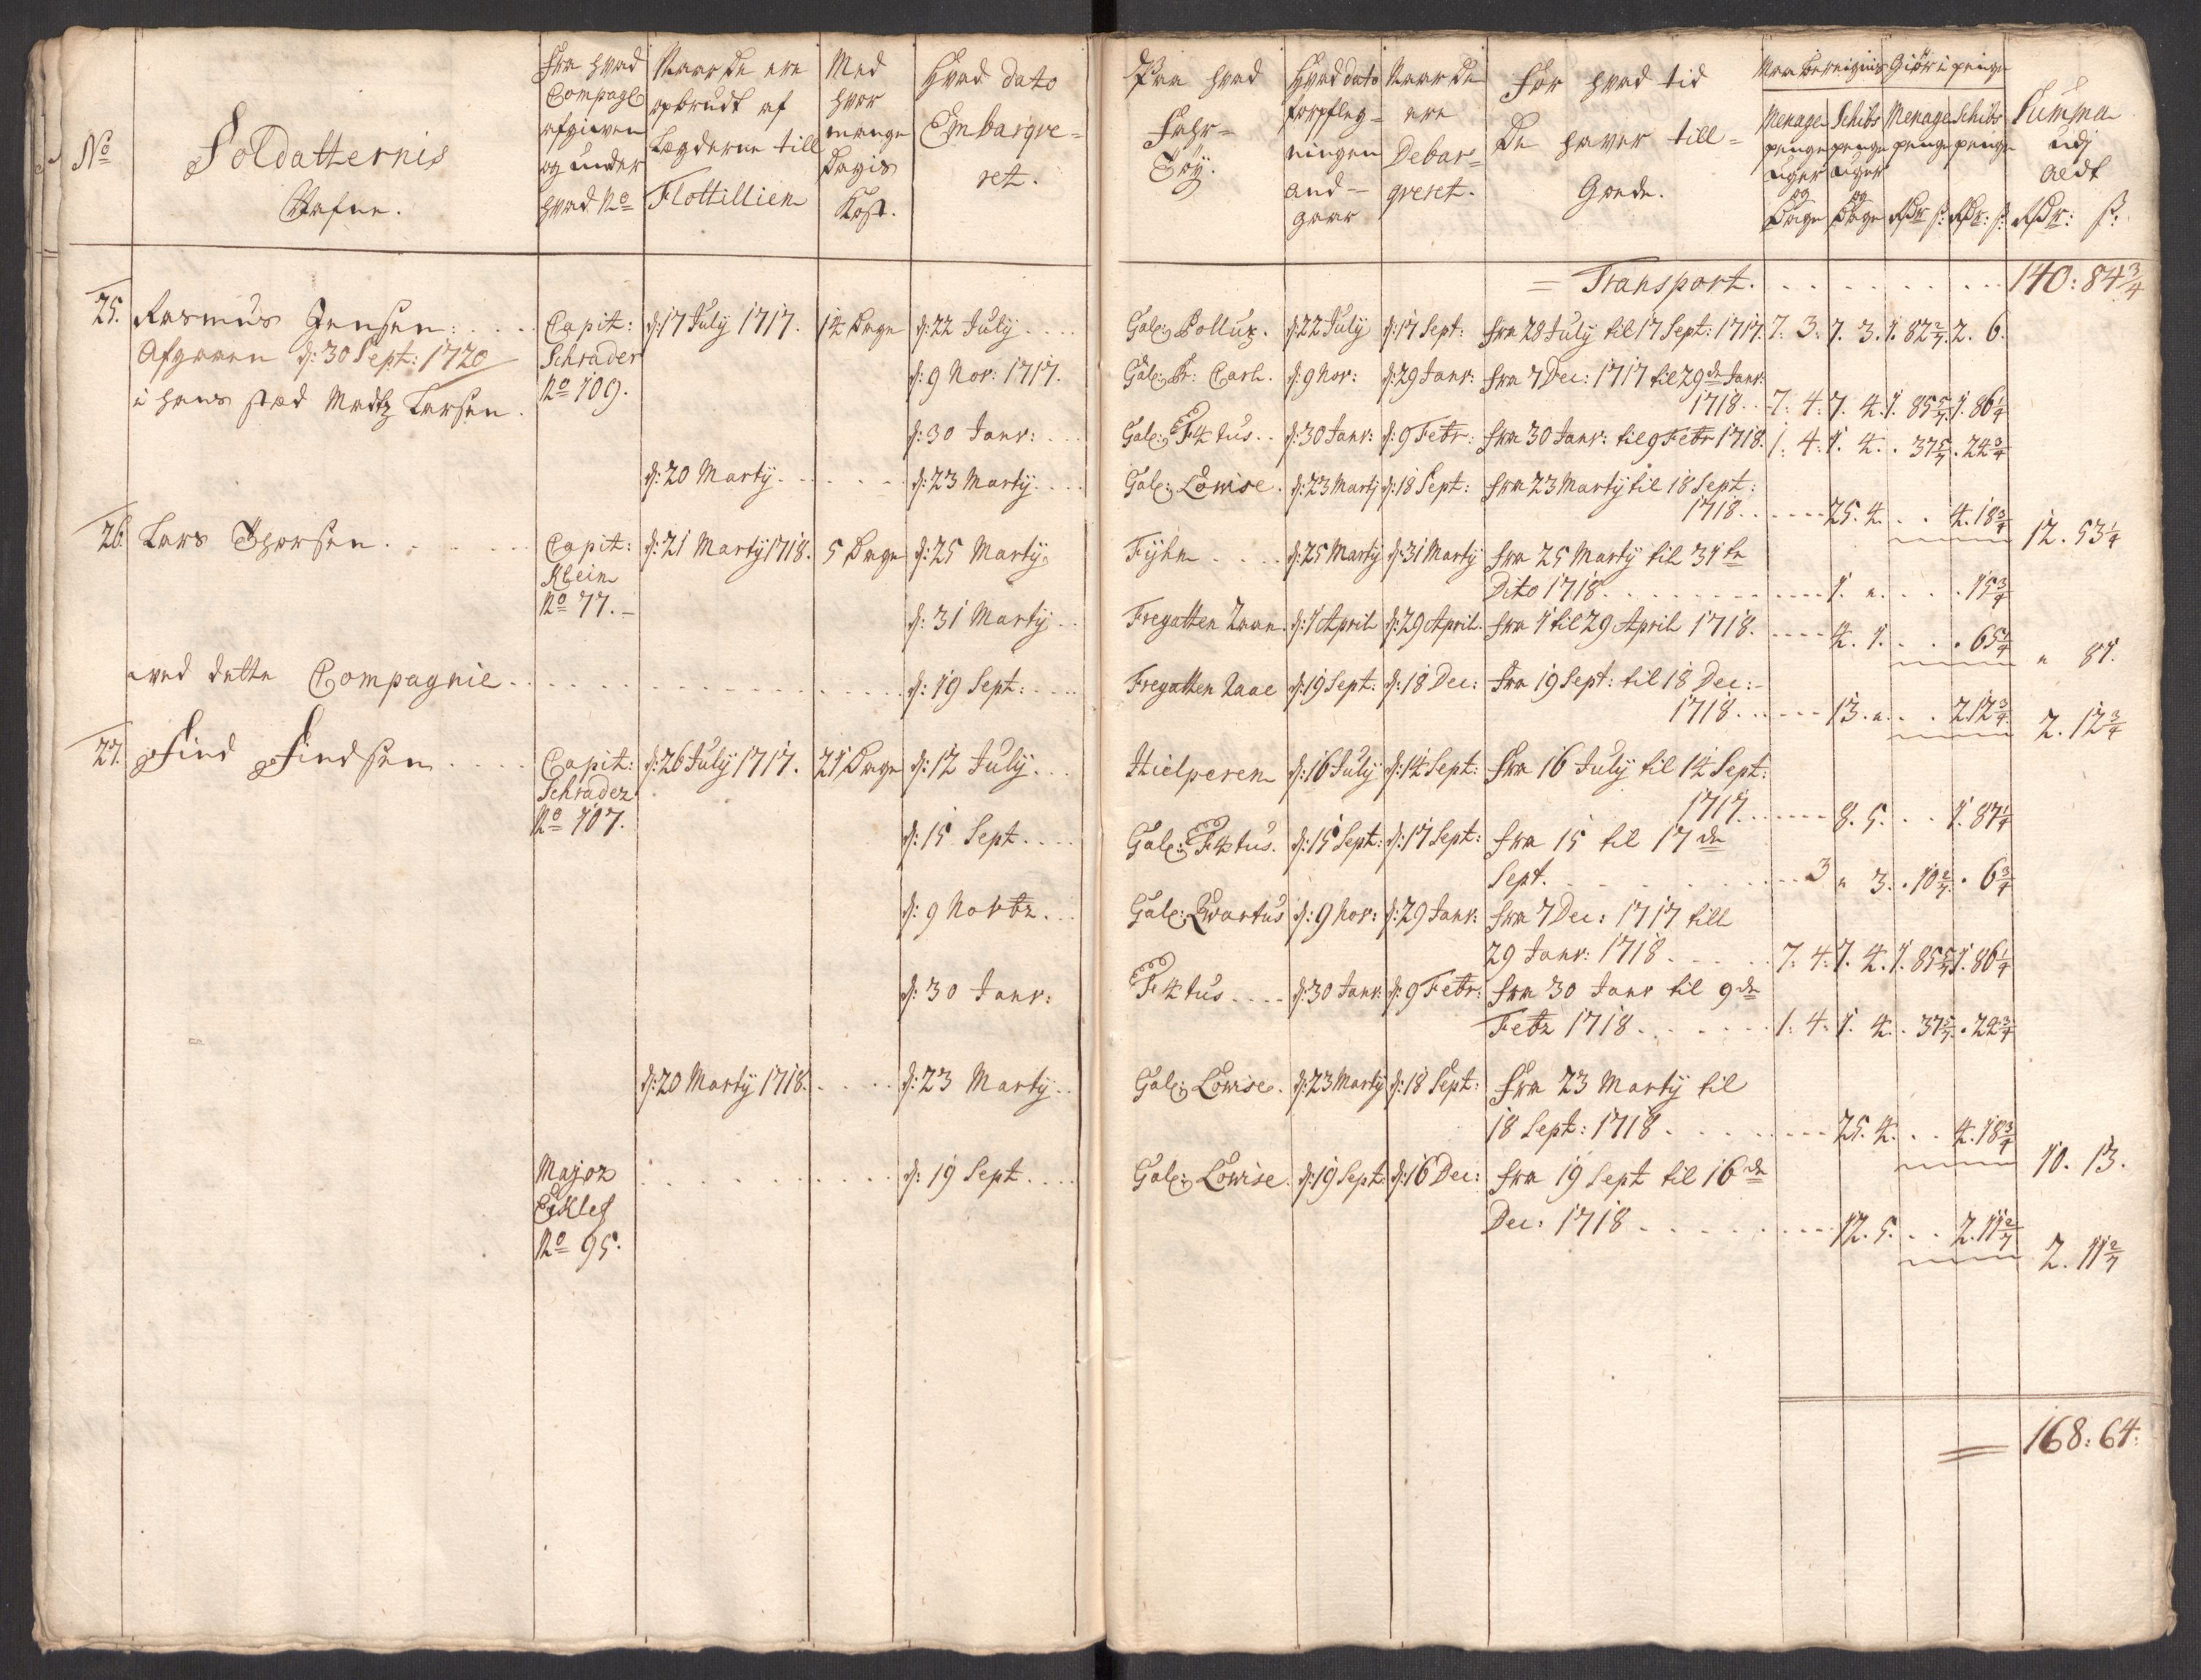 No
Soldatternis
Nafne.
Fra hvad
Compagl
afgiven
og under
hvad No
Naar de ere
opbrudt af
Legderne till
Flottillien
Med
hvor
mange
Dagis
Kost.
Hvad dato
Embarqve=
ret.
25. Rasmus Jensen: . . . . Capit: d: 17 July 1717. 14 Dage d: 22 July . . . .
Afgaaen d: 30 Sept: 1720 Schrader
i hans stæd Madtz Larsen. No 109. d: 9 Nov: 1717.
d: 30 Janr: . . .
d: 20 Marty . . . . . . . d: 23 Marty . . . .
26. Lars Thorsen . . . . . . Capit: d: 21 Marty 1718. 5 Dage d: 25 Marty
Klein
No 77. - d: 31 Marty . .
ved dette Compagnie . . . . . . . . . . . . . . . . d: 19 Sept: . . . .
27. Find Findsen . . . . Capit: d: 26 July 1717. 21 Dage d: 12 July . . .
Schrader
No 107. d: 15 Sept . . . .
d: 9 Novbr . . .
d: 30 Janr:
d: 20 Marty 1718. . . . . d: 23 Marty . .
Major . . . . . . . . . . . d: 19 Sept . . . .
Ecklef
No 95.
Paa hvad
Fahr=
Töÿ.
Hvad dato
forpfleg=
ningen
and=
gaar
Naar de
ere
Debar=
qveret.
For hvad tid
De haver till=
Gode.
Giör i penge
Menage
penge
uger
og
Dage
Schibs
penge
uger
og
Dage
Menage
penge
Rdr: s:
Schibs
penge
Rdr: s:
Summa
udj
aldt
Rdr: s:
= Transport. . . . . . . . . 140: 84 3/4
Gale: Pollux. d: 22 July d: 17 Sept: fra 28 July til 17 Sept: 1717. 7. 3. 7. 3. 1. 82 2/7. 2. 6.
Gale: Pr: Carl. d: 9 Nov: d: 29 Janr: fra 7 Dec: 1717 til 29de Janr:
1718. . 7. 4. 7. 4. 1. 85 5/7. 1. 86 1/4
Gale: F4tus . . d: 30 Janr: d: 9 Febr: fra 30 Janr: til 9 Febr 1718. 1. 4. 1. 4. . 37 5/7 . 24 3/4
Gale: Lovise. d: 23 Marty d: 18 Sept: fra 23 Marty til 18 Sept:
1718. . . . . . 25. 4. . . 4. 18 3/4 12. 53 1/4
Fyhn . . . . d: 25 Marty d: 31 Marty fra 25 Marty til 31te
Dito 1718 . . . . . . . . . . . . 1. " . . . . 15 3/4
Fregatten Raae. d: 1 April d: 29 April. fra 1 til 29 April 1718. . . . . 4. 1. . . . 65 1/4 " 81.
Fregatten Raae d: 19 Sept: d: 18 Dec: fra 19 Sept: til 18 Dec: -
1718. . . . . . 13. " . . . 2. 12 3/4 2. 12 3/4
Hielperen d: 16 July d: 14 Sept: fra 16 July til 14 Sept:
1717. . . . . . 8. 5. . . 1. 87 1/4
Gale: F4tus. d: 15 Sept: d: 17 Sept: fra 15 til 17de
Sept. . . . . . . . . . 3 " 3. . 10 2/7. . 6 3/4
Gale: Qvartus d: 9 Nov: d: 29 Janr: fra 7 Dec: 1717 till
29 Janr: 1718 . . . . . 7. 4. 7. 4. 1. 85 5/7 1. 86 1/4
F4tus . . . . d: 30 Janr: d: 9 Febr: fra 30 Janr til 9de
Febr 1718 . . . . . . . 1. 4. 1. 4. . 37 5/7. . 24 3/4
Gale: Lovise. d: 23 Marty d: 18 Sept: fra 23 Marty til
18 Sept: 1718 . . . . . . . . . 25. 4. . . 4. 18 3/4 10. 13.
Gale: Lovise d: 19 Sept: d: 16 Dec: fra 19 Sept til 16de
Dec: 1718 . . . . . . . . . . 12. 5. . . 2. 11 2/7 2. 11 2/7
= 168: 64.